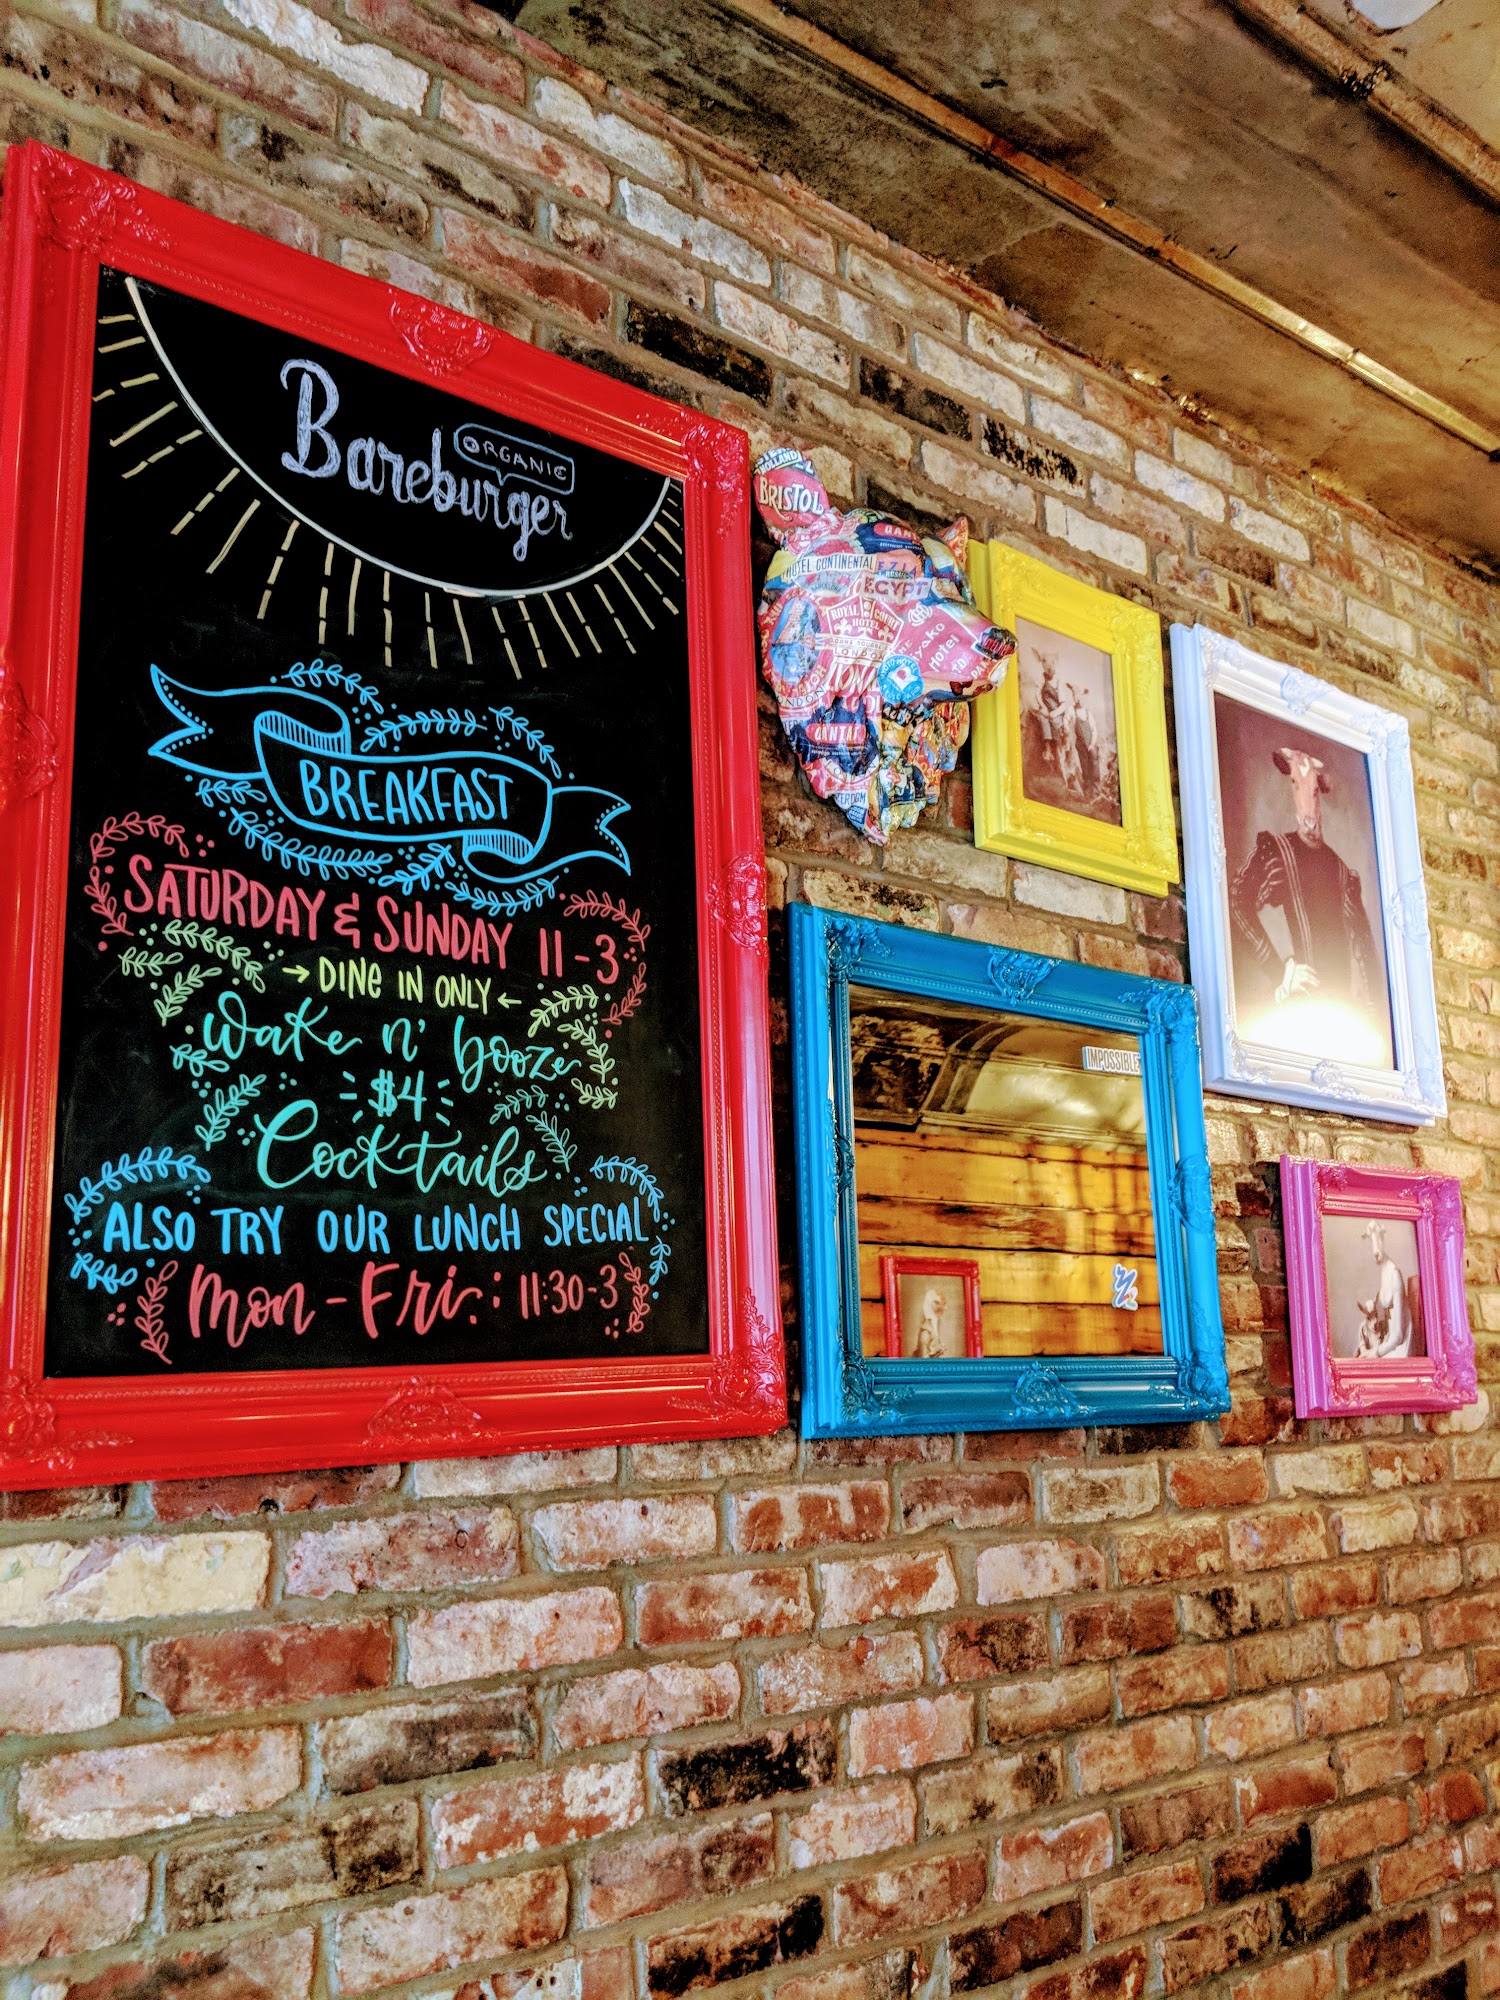 Bareburger
ORGANIC
BREAKFAST
SATURDAY & SUNDAY 11-3
→ DINE IN ONLY ←
Wake n' booze
$4
Cocktails
ALSO TRY OUR LUNCH SPECIAL
Mon-Fri: 11:30-3
HOLLAND
BRISTOL
HOTEL CONTINENTAL
EGYPT
ROYAL COURT
HOTEL
LONDON
Hotel
IMPOSSIBLE